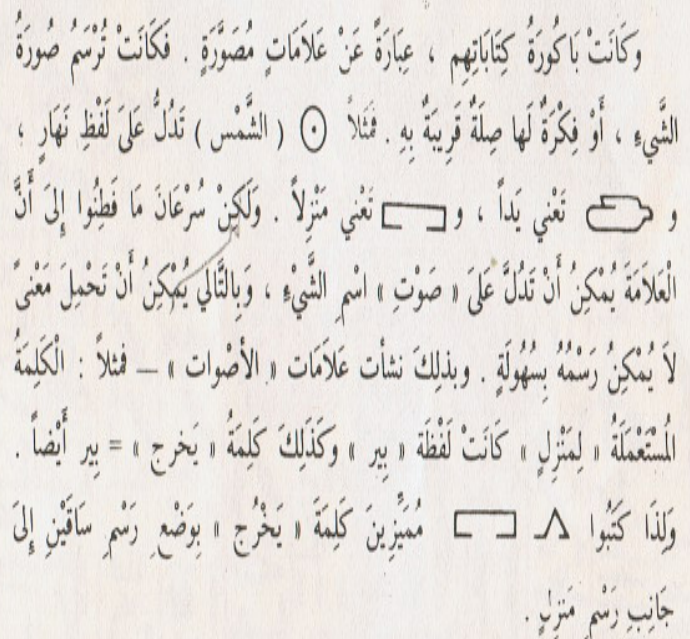 وكَانَتْ بَاكُورَةُ كِتَابَاتِهِم ، عِبَارَةً عَنْ عَلاَمَاتٍ مُصَوَّرَةٍ . فَكَانَتْ تُرْسَمُ صُورَةُ
الشَّيءِ ، أَوْ فِكْرَةٌ لَها صِلَةٌ قَرِيبَةٌ بِهِ . فَمَثلاً ( الشَّمْس ) تَدُلُّ عَلَى لَفْظِ نَهَارٍ ؛
و تَعْني يَداً ، و تَعْني مَنْزِلاً . وَلَكِنْ سُرْعَانَ مَا فَطِنُوا إِلَى أَنَّ
الْعَلاَمَةَ يُمْكِنُ أَنْ تَدُلَّ عَلَى « صَوْتِ » اسْمِ الشَّيْءِ ، وَبِالتَّالي يُمْكِنُ أَنْ تَحْمِلَ مَعْنىً
لاَ يُمْكِنُ رَسْمُهُ بِسُهُولَةٍ . وبذلِكَ نشأت عَلاَمَات « الأصْوات » — فمثلاً : الْكَلِمَةُ
المُسْتَعْمَلَةُ « لِمَنْزِلٍ » كَانَتْ لَفْظَة « بير » وكَذَلِكَ كَلِمَةُ « يَخرج » = بِير أَيْضاً .
وَلِذَا كَتَبُوا مُمَيِّزِينَ كَلِمَةَ « يَخْرُج » بِوَضْعِ رَسْمِ سَاقَيْنِ إِلَى
جَانِبِ رَسْمِ مَنزِلٍ .